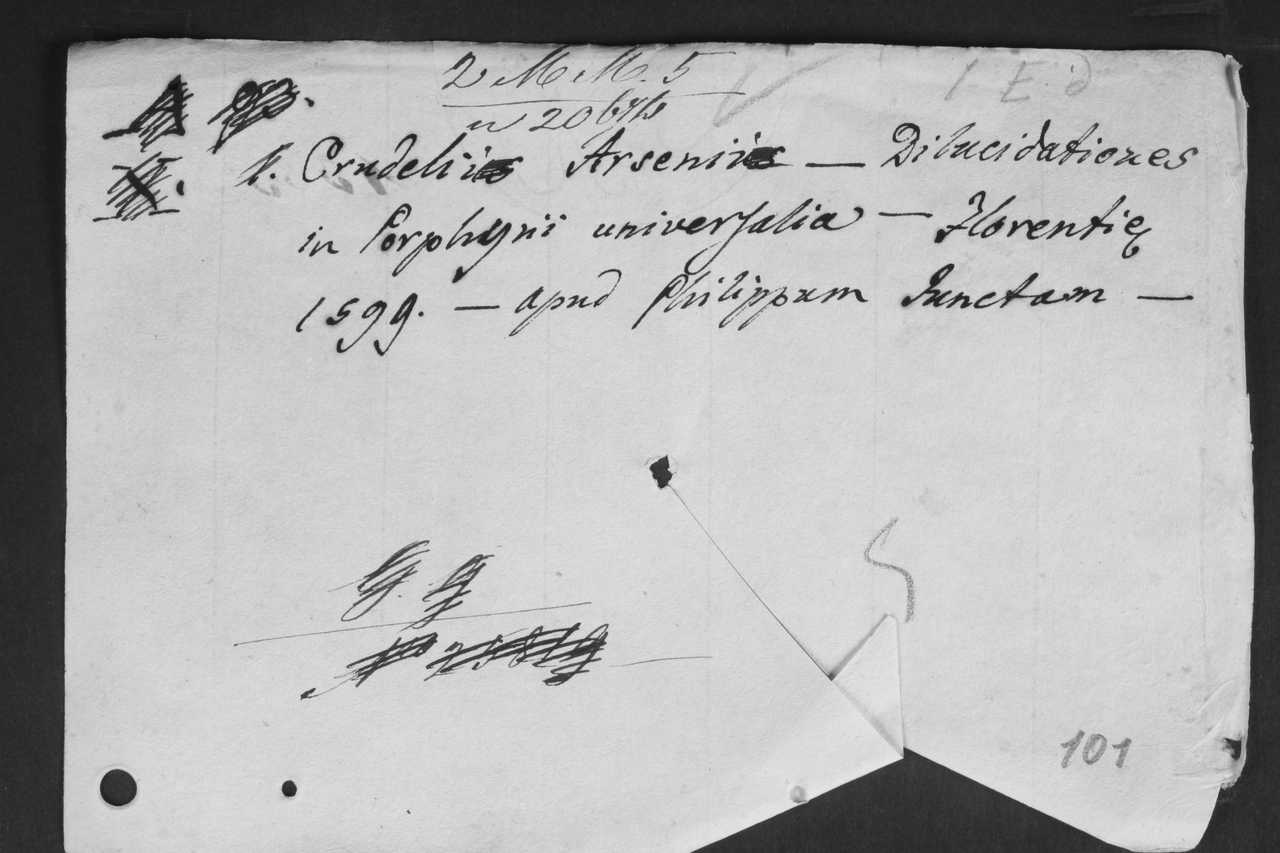 2 M M. 5
1 E. d
1. Crudelii Arsenii — Dilucidationes
in Porphyrii universalia — Florentię
1599. — apud Philippum Junctam —
101